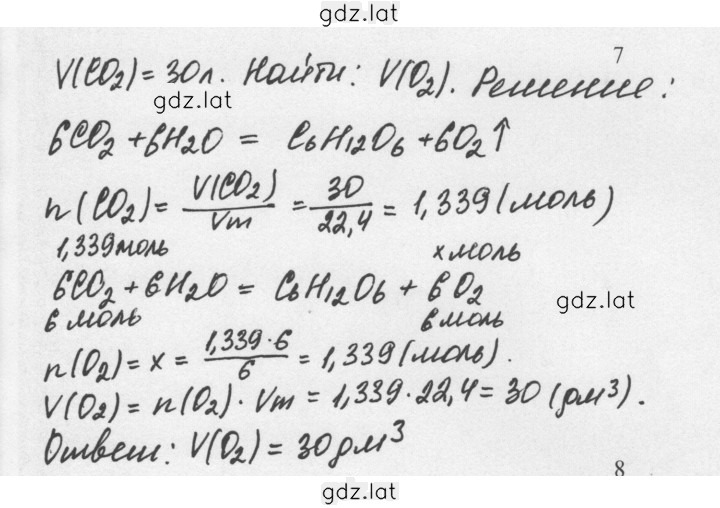 gdz.lat
7
V(CO₂) = 30л. Найти: V(O₂). Решение:
gdz.lat
6CO₂ + 6H₂O = C₆H₁₂O₆ + 6O₂↑
n(CO₂) = V(CO₂)/Vm = 30/22,4 = 1,339 (моль)
1,339 моль x моль
6CO₂ + 6H₂O = C₆H₁₂O₆ + 6O₂
gdz.lat
6 моль 6 моль
n(O₂) = x = 1,339·6/6 = 1,339 (моль).
V(O₂) = n(O₂) · Vm = 1,339·22,4 = 30 (дм³).
Ответ: V(O₂) = 30 дм³
8
gdz.lat